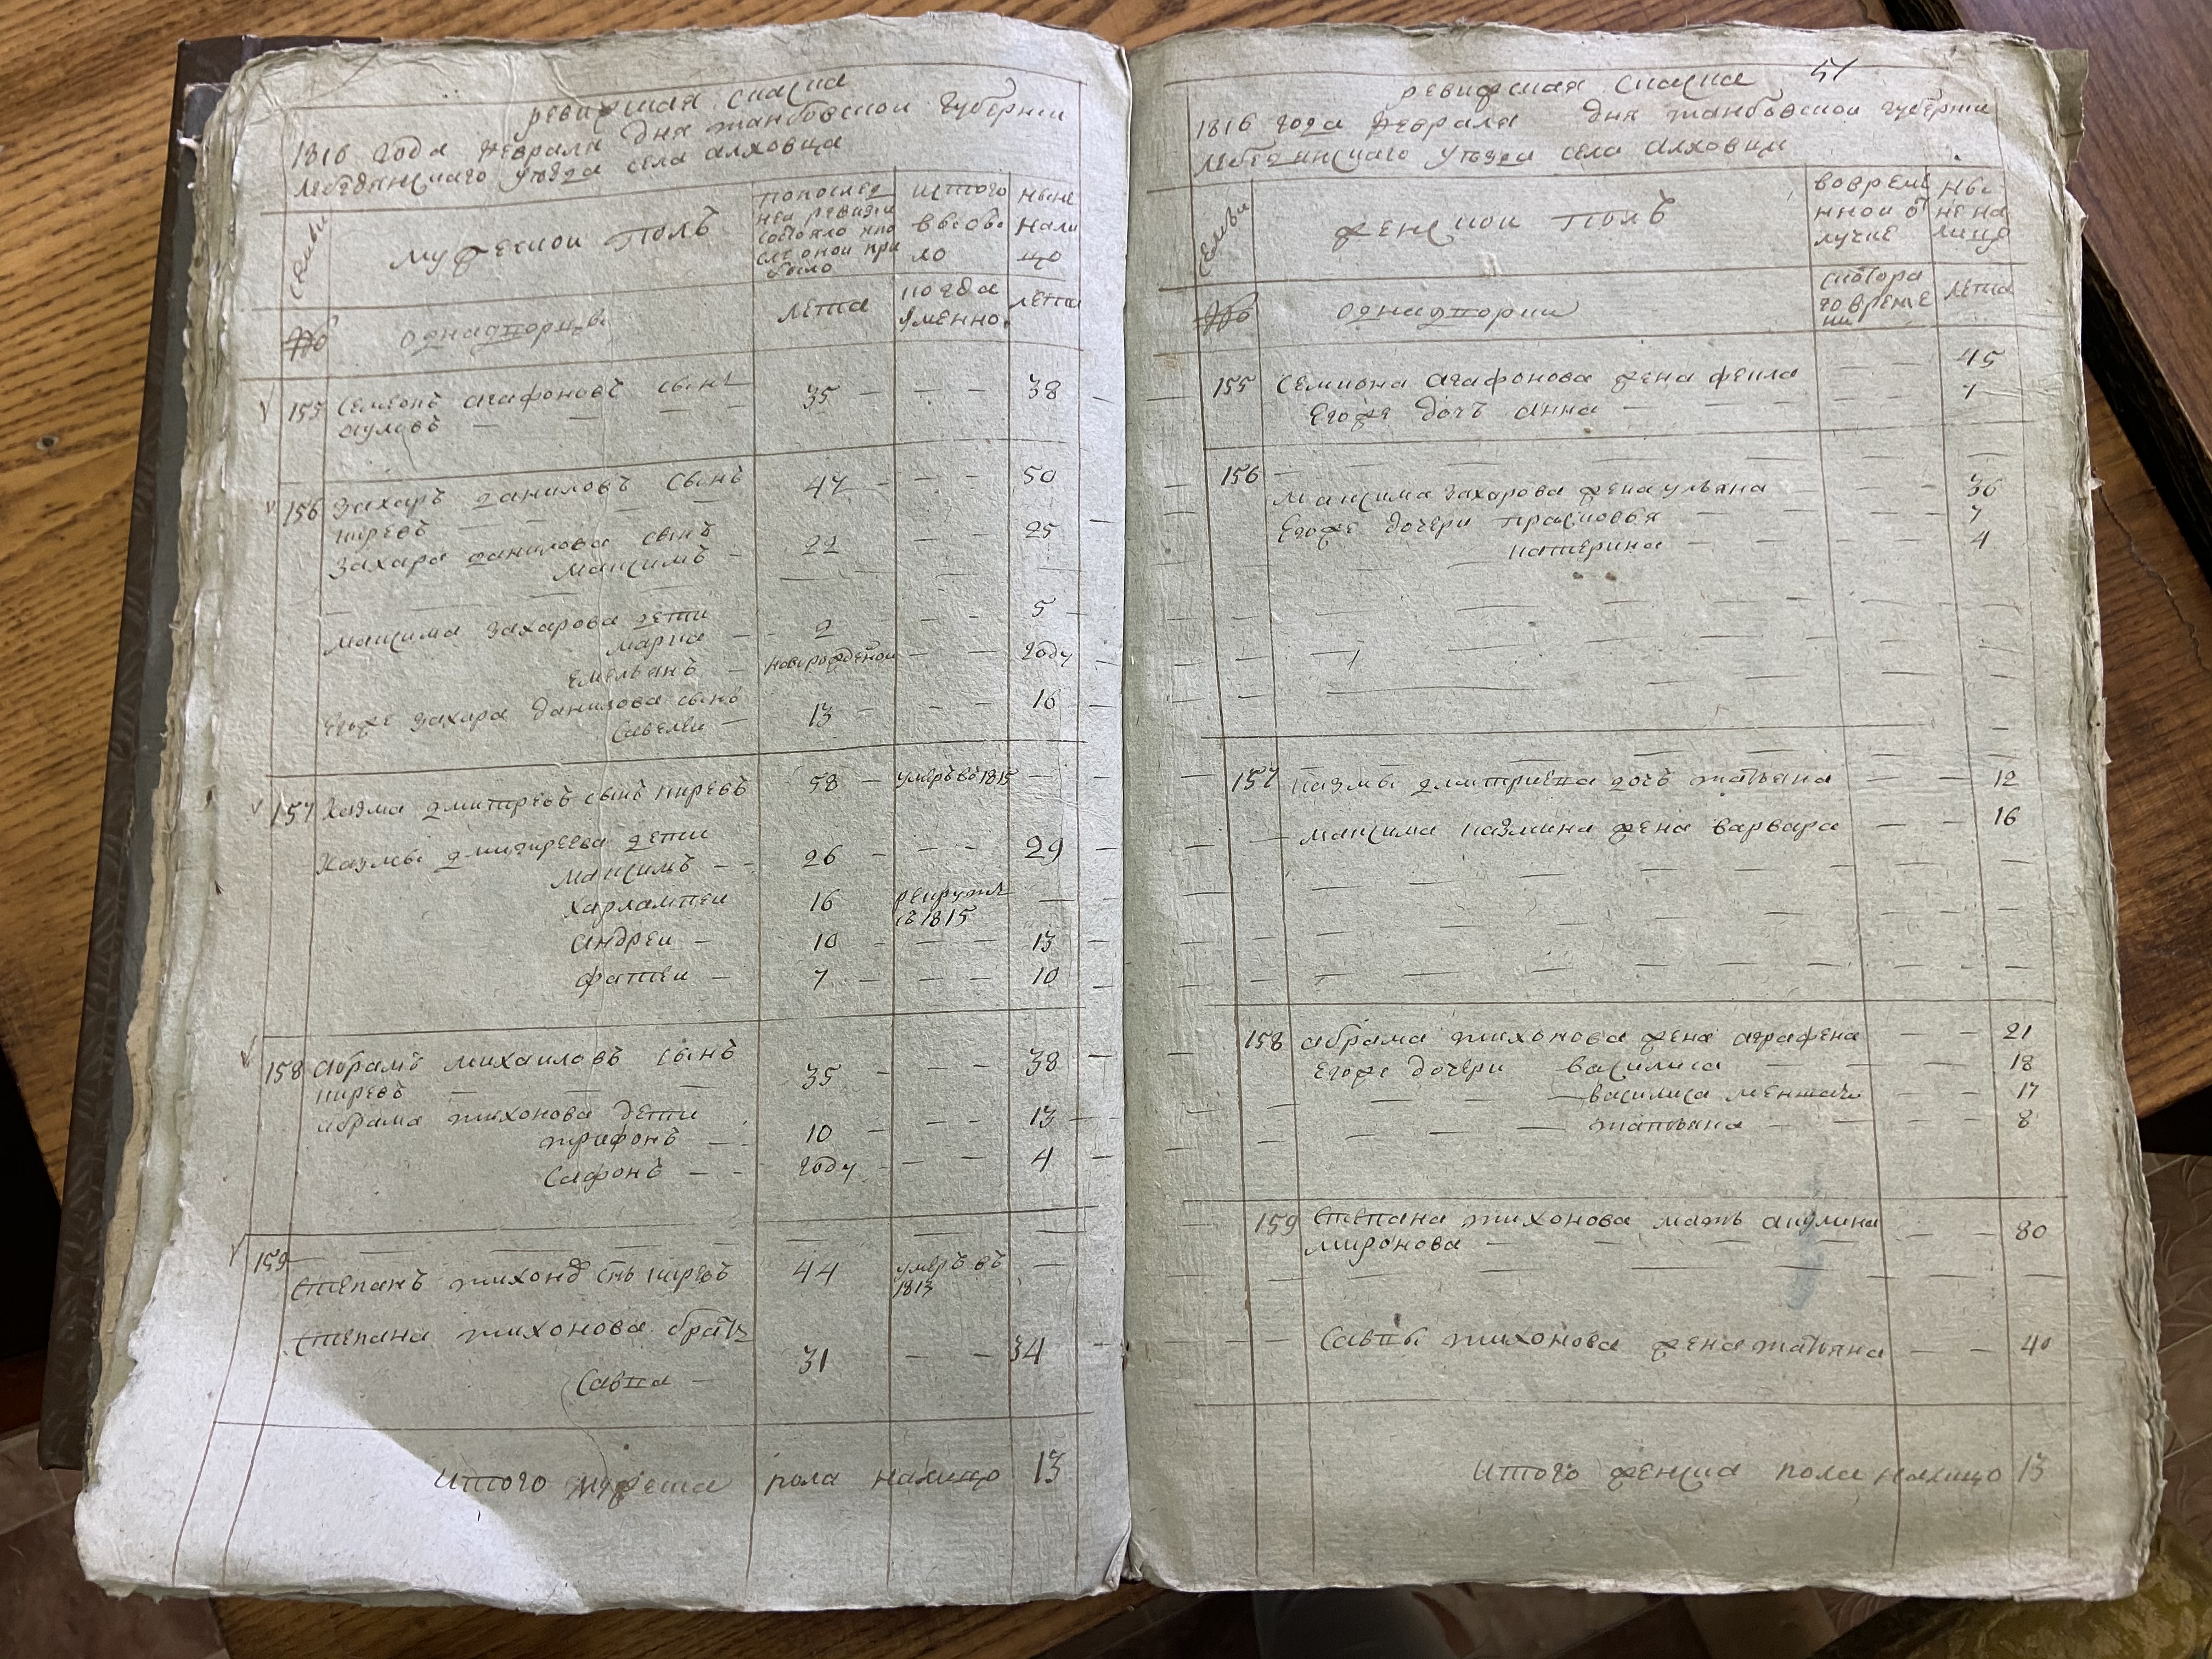 ревижская скаска
1816 года февраля дня танбовской губернии
лебедянскаго уѣзда села алховца
семьи
мужескои полъ
попослед
неи ревизии
состояло ипо
слѣ онои при
было
истого
выбы
ло
ныне
нали
цо
№
однадворцы
лета
когда
имянно
лета
155 Семеонъ агафоновъ сынъ 35 — — 38
акуловъ — — —
156 Захаръ даниловъ сынъ 47 — — 50
киревъ — — —
Захара данилова сынъ
максимъ — 22 — — 25
максима захарова дети
марка — 2 — — 5
емельянъ — новорожденои — — году
Егоже захара данилова сынъ
Савелеи — 13 — — 16
157 Казма дмитревъ сынъ киревъ 58 — умеръ въ 1815 —
Казмы дмитреева дети
максимъ — 26 — — 29
харлампеи 16 рекрутъ —
въ 1815
андреи — 10 — — 13
фатеи — 7 — — 10
158 абрамъ михаиловъ сынъ 35 — — 38
киревъ — — —
абрама тихонова дети
трифонъ — 10 — — 13
Сафонъ — году — — 4
159
Степанъ тихоновъ снъ киревъ 44 умеръ въ —
1813
Степана тихонова братъ
Савка — 31 — — 34
Итого мужеска пола налицо 13
ревижская скаска 51
1816 года февраля дня танбовскои губерни
лебедянскаго уѣзда села алховци
семьи
женскои полъ
вовреме
ннои от
лучке
ны
не на
лицо
№
однадворки
скотора
говреме
ни
лета
155 Семиона агафонова жена фекла — — 45
Егоже дочъ анна — — — 7
156 —
максима захарова жена ульяна — — 36
Егоже дочери прасковья — — 7
катерина — — 4
157 казмы дмитриева дочъ татьяна — — 12
— максима казмина жена варвара — — 16
158 абрама тихонова жена аграфена — — 21
Егоже дочери василиса — — 18
— василиса меншая — — 17
— татьяна — — 8
159 Степана тихонова мать акулина
миронова — — — 80
Савки тихонова жена татьяна — — 40
Итого женска пола налицо 13